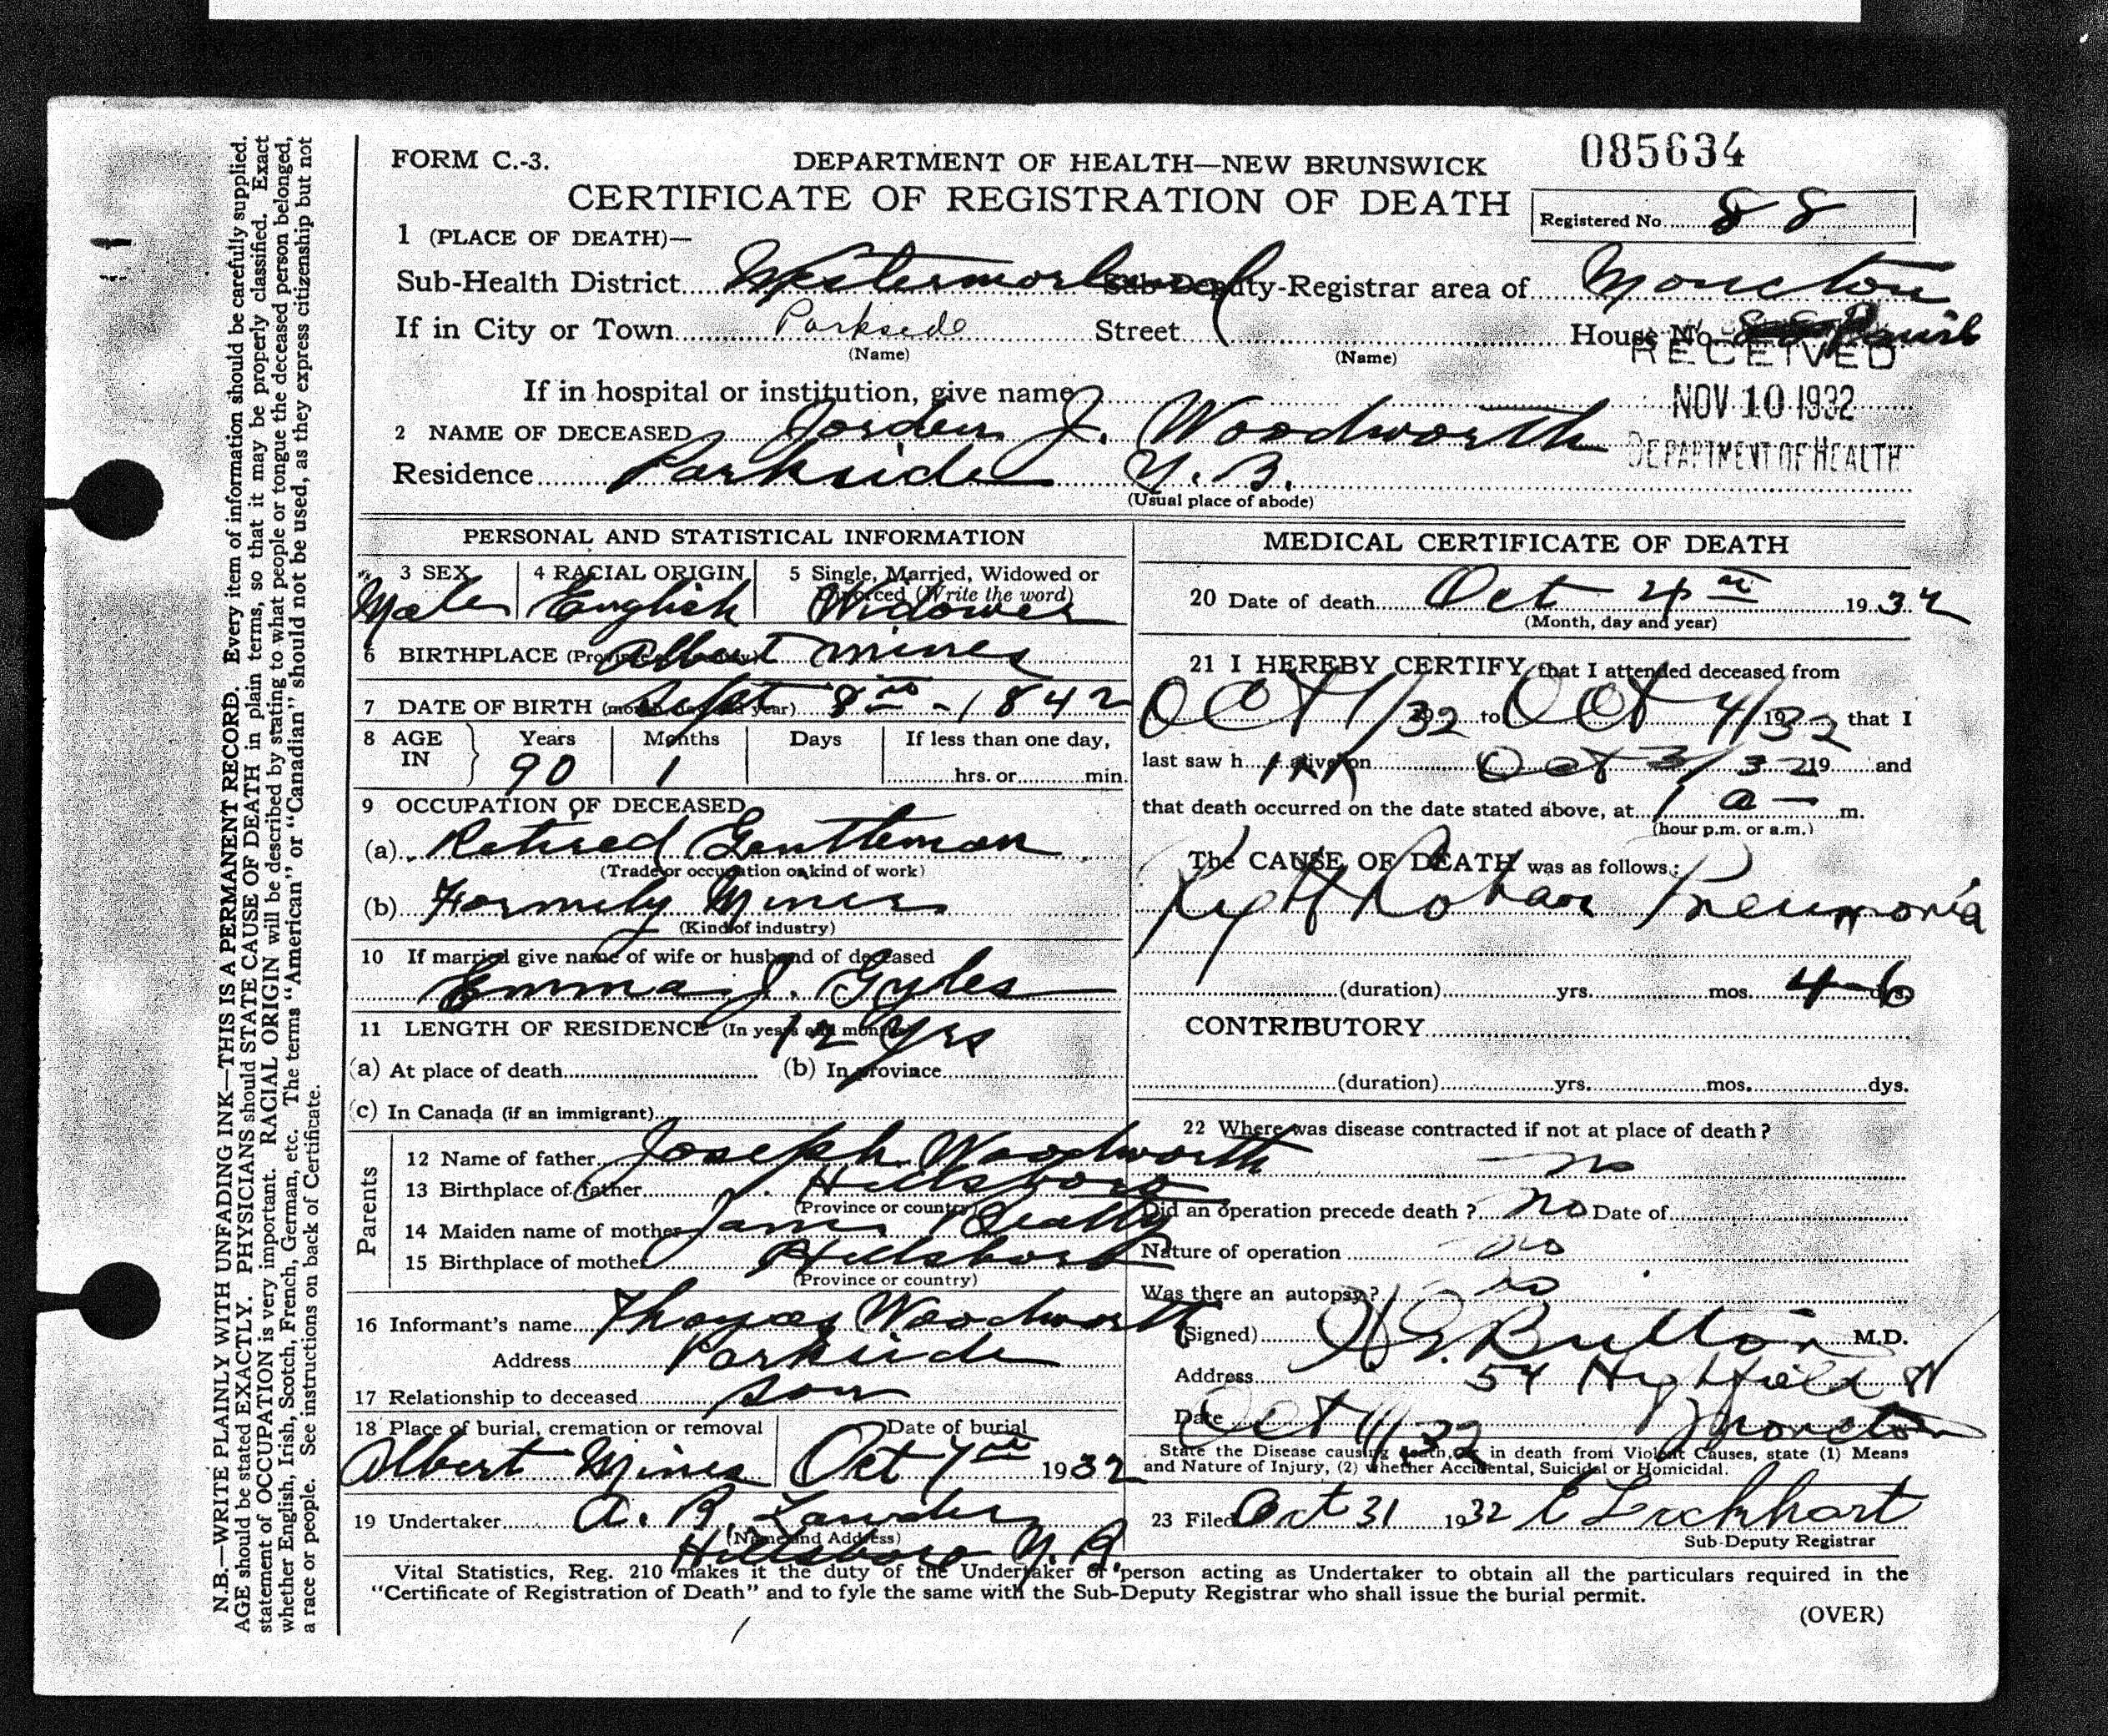 FORM C.-3.
DEPARTMENT OF HEALTH—NEW BRUNSWICK
085634
CERTIFICATE OF REGISTRATION OF DEATH
Registered No. 88
1 (PLACE OF DEATH)—
Sub-Health District Westmorland Sub-Deputy-Registrar area of Moncton
If in City or Town Parkside Street House No. Parish
(Name) (Name)
RECEIVED
If in hospital or institution, give name
NOV 10 1932
2 NAME OF DECEASED Jorden J. Woodworth
DEPARTMENT OF HEALTH
Residence Parkside N.B.
(Usual place of abode)
PERSONAL AND STATISTICAL INFORMATION
3 SEX 4 RACIAL ORIGIN 5 Single, Married, Widowed or
Divorced (Write the word)
Male English Widower
6 BIRTHPLACE (Province or country) Albert Mines
7 DATE OF BIRTH (month, day and year) Sept 8th - 1842
8 AGE IN Years Months Days If less than one day,
90 1 hrs. or min.
9 OCCUPATION OF DECEASED
(a) Retired Gentleman
(Trade or occupation or kind of work)
(b) Formely Miner
(Kind of industry)
10 If married give name of wife or husband of deceased
Emma J. Gyles
11 LENGTH OF RESIDENCE (In years and months)
12 yrs
(a) At place of death (b) In province
(c) In Canada (if an immigrant)
Parents
12 Name of father Joseph Woodworth
13 Birthplace of father Hillsboro
(Province or country)
14 Maiden name of mother Jane Beatty
15 Birthplace of mother Hillsboro
(Province or country)
16 Informant's name Thomas Woodworth
Address Parkside
17 Relationship to deceased son
18 Place of burial, cremation or removal Date of burial
Albert Mines Oct 7th 1932
19 Undertaker A. R. Lawder
(Name and Address)
Hillsboro N.B.
MEDICAL CERTIFICATE OF DEATH
20 Date of death Oct 4th 1932
(Month, day and year)
21 I HEREBY CERTIFY that I attended deceased from
Oct 1/32 19 to Oct 4/32 19 that I
last saw h im alive on Oct 3/32 19 and
that death occurred on the date stated above, at 1 a — m.
(hour p.m. or a.m.)
The CAUSE OF DEATH was as follows:
Right Lobar Pneumonia
(duration) yrs. mos. 4-6 dys.
CONTRIBUTORY
(duration) yrs. mos. dys.
22 Where was disease contracted if not at place of death?
no
Did an operation precede death? no Date of
Nature of operation no
Was there an autopsy? no
(Signed) Button M.D.
Address 54 Highfield St
Date Oct 11/32 Moncton
State the Disease causing death, or, in death from Violent Causes, state (1) Means
and Nature of Injury, (2) whether Accidental, Suicidal or Homicidal.
23 Filed Oct 31 1932 Lockhart
Sub-Deputy Registrar
Vital Statistics, Reg. 210 makes it the duty of the Undertaker or person acting as Undertaker to obtain all the particulars required in the
"Certificate of Registration of Death" and to fyle the same with the Sub-Deputy Registrar who shall issue the burial permit.
(OVER)
N.B.—WRITE PLAINLY WITH UNFADING INK—THIS IS A PERMANENT RECORD. Every item of information should be carefully supplied.
AGE should be stated EXACTLY. PHYSICIANS should STATE CAUSE OF DEATH in plain terms, so that it may be properly classified. Exact
statement of OCCUPATION is very important. RACIAL ORIGIN will be described by stating to what people or tongue the deceased person belonged,
whether English, Irish, Scotch, French, German, etc. The terms "American" or "Canadian" should not be used, as they express citizenship but not
a race or people. See instructions on back of Certificate.